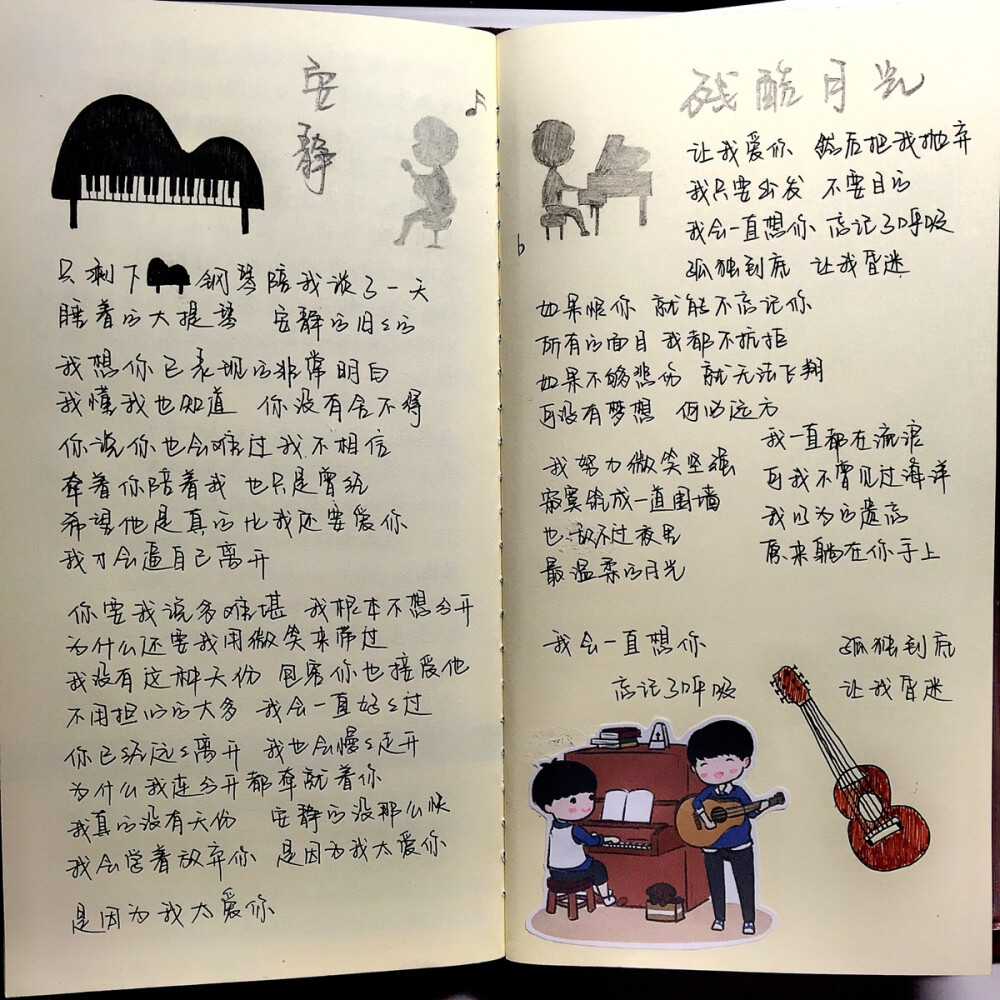 安静
只剩下钢琴陪我谈了一天
睡着的大提琴 安静的旧々的
我想你已表现的非常明白
我懂我也知道 你没有舍不得
你说你也会难过我不相信
牵着你陪着我 也只是曾经
希望他是真的比我还要爱你
我才会逼自己离开
你要我说多难堪 我根本不想分开
为什么还要我用微笑来带过
我没有这种天份 包容你也接受他
不用担心的太多 我会一直好々过
你已经远々离开 我也会慢々走开
为什么我连分开都牵就着你
我真的没有天份 安静的没那么快
我会学着放弃你 是因为我太爱你
是因为我太爱你
残酷月光
让我爱你 然后把我抛弃
我只要出发 不要目的
我会一直想你 忘记了呼吸
孤独到底 让我昏迷
如果恨你 就能不忘记你
所有的面目 我都不抗拒
如果不够悲伤 就无法飞翔
可没有梦想 何必远方
我一直都在流浪
可我不曾见过海洋
我以为的遗忘
原来躺在你手上
我努力微笑坚强
寂寞筑成一道围墙
也敌不过夜里
最温柔的月光
我会一直想你
忘记了呼吸
孤独到底
让我昏迷